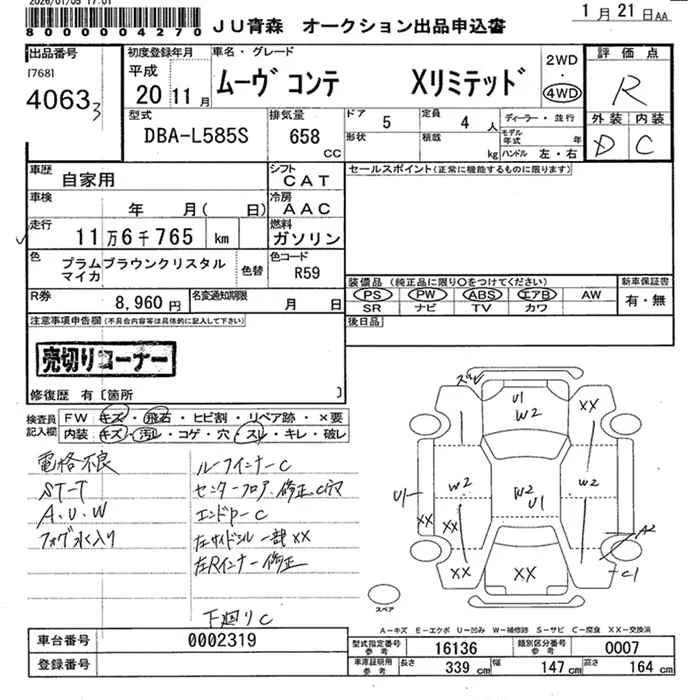 2026/01/05 17:01
8000004270
JU青森 オークション出品申込書
1月21日AA
出品番号
[768]
4063 3
初度登録年月
平成
20 11月
車名・グレード
ムーヴ コンテ Xリミテッド
2WD
・
4WD
評価点
R
外装 内装
D C
型式
DBA-L585S
排気量
658
CC
ドア
5
定員
4 人
形状
積載
kg
ディーラー・並行
モデル年式 年
ハンドル 左・右
車歴
自家用
シフト
CAT
車検
年 月( 日)
冷房
AAC
走行
11万6千765 km
燃料
ガソリン
色
プラムブラウンクリスタル
マイカ
色替
色コード
R59
R券
8,960円
名変通知期限
月 日
セールスポイント(正常に機能するものに限ります)
装備品 (純正品に限り○をつけてください)
PS PW ABS エアB AW
SR ナビ TV カワ
新車保証書
有・無
後日品
注意事項申告欄(不具合内容等は具体的に記入して下さい)
売切りコーナー
修復歴 有 [箇所 ]
検査員
記入欄
FW キズ・飛石・ヒビ割・リペア跡・×要
内装 キズ・汚レ・コゲ・穴・スレ・キレ・破レ
電格不良
ST-T
A.U.W
フォグ水入り
ルーフインナーC
センターフロア、修正、C穴
エンドP-C
左サイドシル 一部XX
左Rインナー修正
下廻りC
U1
W2
XX
W2
W2
U1
W2
U1
XX
XX
A2
XX
XX
C1
スペア
A-キズ E-エクボ U-凹み W-補修跡 S-サビ C-腐食 XX-交換済
車台番号
0002319
登録番号
型式指定番号
参考
16136
類別区分番号
参考
0007
車庫証明用
参考
長さ
339 cm
幅
147 cm
高さ
164 cm